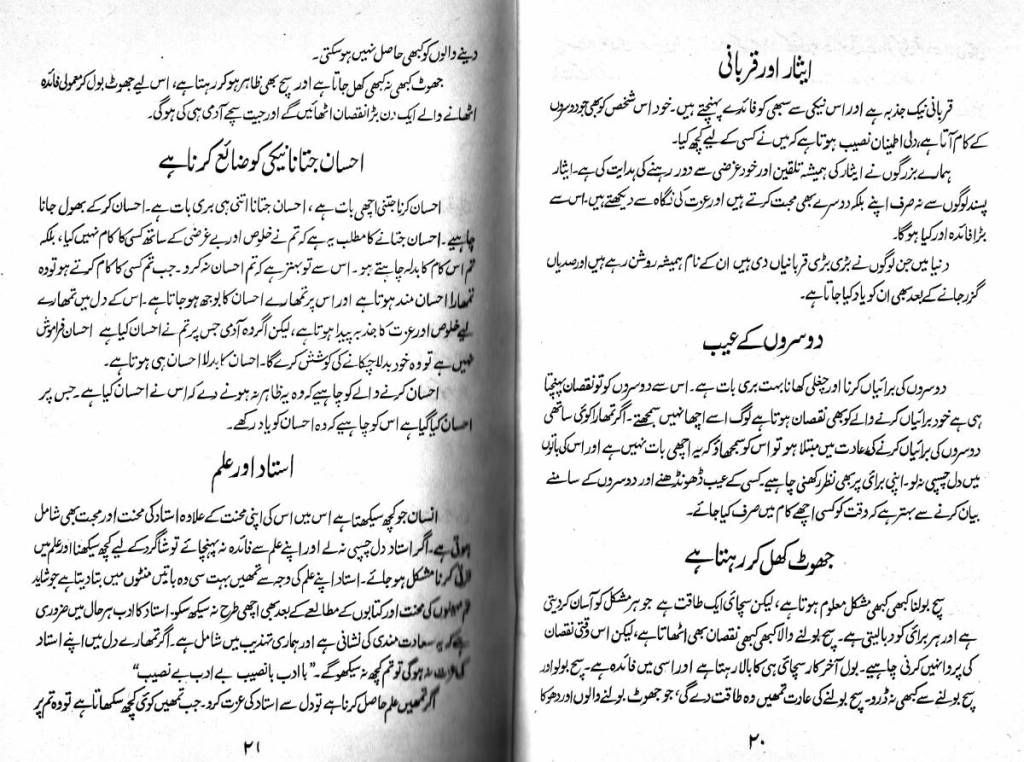 ایثار اور قربانی
قربانی نیک جذبہ ہے اور اس نیکی سے سبھی کو فائدے پہنچتے ہیں۔ خود اس شخص کو بھی جو دوسروں
کے کام آتا ہے، دلی اطمینان نصیب ہوتا ہے کہ میں نے کسی کے لیے کچھ کیا۔
ہمارے بزرگوں نے ایثار کی ہمیشہ تلقین اور خود غرضی سے دور رہنے کی ہدایت کی ہے۔ ایثار
پسند لوگوں سے نہ صرف اپنے بلکہ دوسرے بھی محبت کرتے ہیں اور عزت کی نگاہ سے دیکھتے ہیں۔ اس سے
بڑا فائدہ اور کیا ہوگا۔
دنیا میں جن لوگوں نے بڑی بڑی قربانیاں دی ہیں ان کے نام ہمیشہ روشن رہے ہیں اور صدیاں
گزر جانے کے بعد بھی ان کو یاد کیا جاتا ہے۔
دوسروں کے عیب
دوسروں کی برائیاں کرنا اور چغلی کھانا بہت بری بات ہے۔ اس سے دوسروں کو تو نقصان پہنچتا
ہی ہے خود برائیاں کرنے والے کو بھی نقصان ہوتا ہے لوگ اسے اچھا نہیں سمجھتے۔ اگر تمھارا کوئی ساتھی
دوسروں کی برائیاں کرنے کی عادت میں مبتلا ہو تو اس کو سمجھاؤ کہ یہ اچھی بات نہیں ہے اور اس کی باتوں
میں دل چسپی نہ لو۔ اپنی برائی پر بھی نظر رکھنی چاہیے۔ کسی کے عیب ڈھونڈھنے اور دوسروں کے سامنے
بیان کرنے سے بہتر ہے کہ وقت کو کسی اچھے کام میں صرف کیا جائے۔
جھوٹ کھل کر رہتا ہے
سچ بولنا کبھی کبھی مشکل معلوم ہوتا ہے، لیکن سچائی ایک طاقت ہے جو ہر مشکل کو آسان کر دیتی
ہے اور ہر برائی کو دبا لیتی ہے۔ سچ بولنے والا کبھی کبھی نقصان بھی اٹھاتا ہے، لیکن اس وقتی نقصان
کی پروا نہیں کرنی چاہیے۔ بول آخر کار سچائی ہی کا بالا رہتا ہے اور اسی میں فائدہ ہے۔ سچ بولو اور
سچ بولنے سے کبھی نہ ڈرو۔ سچ بولنے کی عادت تمھیں وہ طاقت دے گی، جو جھوٹ بولنے والوں اور دھوکا
۲۰
دینے والوں کو کبھی حاصل نہیں ہو سکتی۔
جھوٹ کبھی نہ کبھی کھل جاتا ہے اور سچ بھی ظاہر ہو کر رہتا ہے، اس لیے جھوٹ بول کر معمولی فائدہ
اٹھانے والے ایک دن بڑا نقصان اٹھائیں گے اور جیت سچے آدمی ہی کی ہوگی۔
احسان جتانا نیکی کو ضائع کرنا ہے
احسان کرنا جتنی اچھی بات ہے، احسان جتانا اتنی ہی بری بات ہے۔ احسان کر کے بھول جانا
چاہیے۔ احسان جتانے کا مطلب یہ ہے کہ تم نے خلوص اور بے غرضی کے ساتھ کسی کا کام نہیں کیا، بلکہ
تم اس کام کا بدلہ چاہتے ہو۔ اس سے تو بہتر ہے کہ تم احسان نہ کرو۔ جب تم کسی کا کام کرتے ہو تو وہ
تمھارا احسان مند ہوتا ہے اور اس پر تمھارے احسان کا بوجھ ہو جاتا ہے۔ اس کے دل میں تمھارے
لیے خلوص اور عزت کا جذبہ پیدا ہوتا ہے، لیکن اگر وہ آدمی جس پر تم نے احسان کیا ہے احسان فراموش
نہیں ہے تو وہ خود بدلا چکانے کی کوشش کرے گا۔ احسان کا بدلا احسان ہی ہوتا ہے۔
احسان کرنے والے کو چاہیے کہ وہ یہ ظاہر نہ ہونے دے کہ اس نے احسان کیا ہے۔ جس پر
احسان کیا گیا ہے اس کو چاہیے کہ وہ احسان کو یاد رکھے۔
استاد اور علم
انسان جو کچھ سیکھتا ہے اس میں اس کی اپنی محنت کے علاوہ استاد کی محنت اور محبت بھی شامل
ہوتی ہے۔ اگر استاد دل چسپی نہ لے اور اپنے علم سے فائدہ نہ پہنچائے تو شاگرد کے لیے کچھ سیکھنا اور علم میں
ترقی کرنا مشکل ہو جائے۔ استاد اپنے علم کی وجہ سے تمھیں بہت سی وہ باتیں منٹوں میں بتا دیتا ہے جو شاید
تم مہینوں کی محنت اور کتابوں کے مطالعے کے بعد بھی اچھی طرح نہ سیکھ سکو۔ استاد کا ادب ہر حال میں ضروری
ہے کہ یہ سعادت مندی کی نشانی ہے اور ہماری تہذیب میں شامل ہے۔ اگر تمھارے دل میں اپنے استاد
کی عزت نہ ہوگی تو تم کچھ نہ سیکھو گے۔ "با ادب با نصیب بے ادب بے نصیب"
اگر تمھیں علم حاصل کرنا ہے تو دل سے استاد کی عزت کرو۔ جب تمھیں کوئی کچھ سکھاتا ہے تو وہ تم پر
۲۱